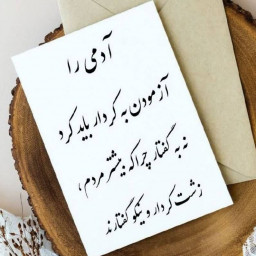 آدمی را
آزمودن به کردار باید کرد
نه به گفتار چرا که بیشتر مردم،
زشت کردار و نیکو گفتارند